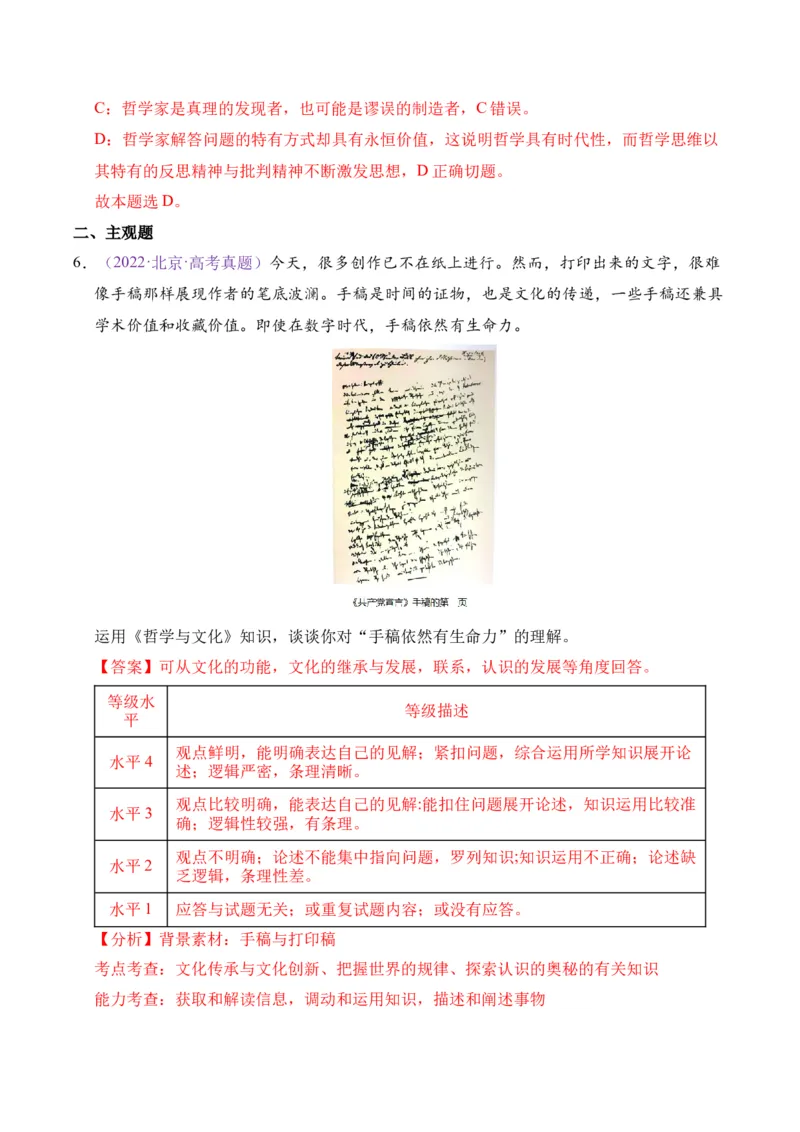 C：哲学家是真理的发现者，也可能是谬误的制造者，C错误。
D：哲学家解答问题的特有方式却具有永恒价值，这说明哲学具有时代性，而哲学思维以
其特有的反思精神与批判精神不断激发思想，D正确切题。
故本题选D。
二、主观题
6．（2022·北京·高考真题）今天，很多创作已不在纸上进行。然而，打印出来的文字，很难
像手稿那样展现作者的笔底波澜。手稿是时间的证物，也是文化的传递，一些手稿还兼具
学术价值和收藏价值。即使在数字时代，手稿依然有生命力。
《共产党宣言》手稿的第 页
运用《哲学与文化》知识，谈谈你对“手稿依然有生命力”的理解。
【答案】可从文化的功能，文化的继承与发展，联系，认识的发展等角度回答。
等级水
平
等级描述
水平4
观点鲜明，能明确表达自己的见解；紧扣问题，综合运用所学知识展开论
述；逻辑严密，条理清晰。
水平3
观点比较明确，能表达自己的见解:能扣住问题展开论述，知识运用比较准
确；逻辑性较强，有条理。
水平2
观点不明确；论述不能集中指向问题，罗列知识;知识运用不正确；论述缺
乏逻辑，条理性差。
水平1
应答与试题无关；或重复试题内容；或没有应答。
【分析】背景素材：手稿与打印稿
考点考查：文化传承与文化创新、把握世界的规律、探索认识的奥秘的有关知识
能力考查：获取和解读信息，调动和运用知识，描述和阐述事物